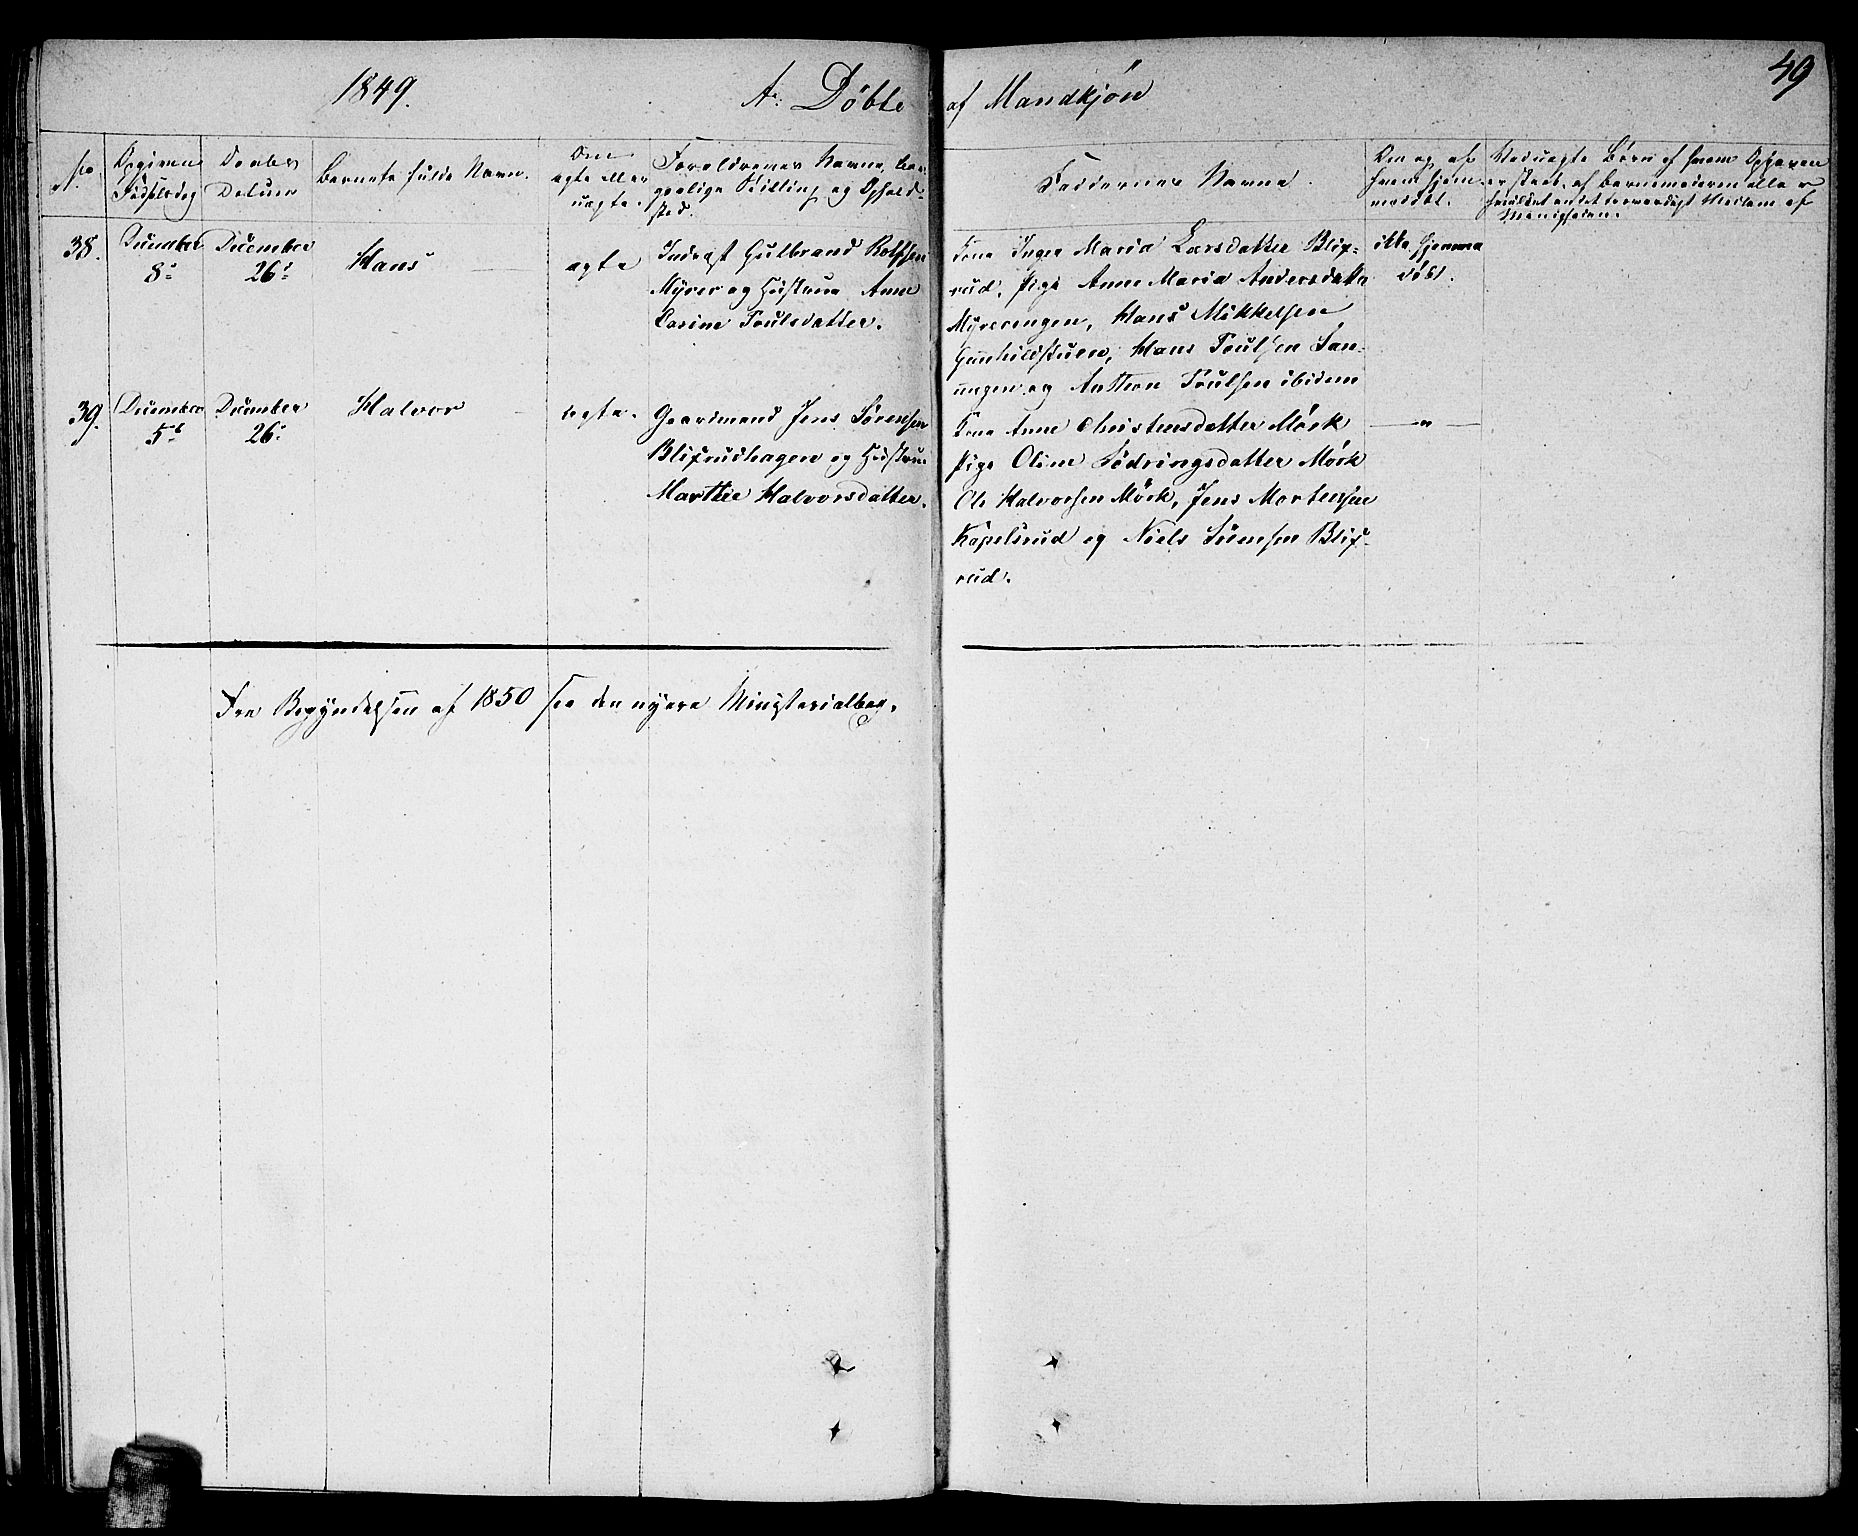 1849. A. Döbte af Mandkjön 49
No. Opgiven Födselsdag
Daabs Datum
Barnets fulde Navn.
Om ægte eller uægte.
Forældrenes Navne, borgerlige Stilling og Opholdssted.
Faddernes Navne
Om og af hvem hjemmedöbt.
Ved uægte Börn af hvem Opgaven er skeet, af Barnemoderen eller
Menigheden.
38. December 8de
December 26de
Hans
ægte
Inderst Gulbrand Rolfsen
Myrer og Hustrue Anne
Carine Poulsdatter.
Kone Inger Maria Larsdatter Blix-
rud, Pige Anne Maria Andersdatter
Myrerengen, Hans Mikkelsen
Gunhildstuen, Hans Poulsen
og Anthon Poulsen ibidem
ikke hjemme
döbt.
39. December 5te
December 26de
Halvor
ægte.
Gaardmand Jens Sörensen
Blixrudhagen og Hustrue
Marthe Halvorsdatter.
Kone Anne Christensdatter Mörk
Pige Oline Södringsdatter Mörk
Ole Halvorsen Mörk, Jens Mortensen
Kapelsrud og Niels Sörensen Blix-
rud.
—"—
Fra Begyndelsen af 1850 see den nyere Ministerialbog.